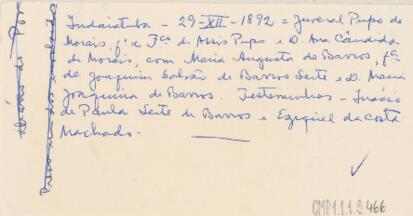 Indaiatuba - 29-XII-1892 = Juvenal Pupo de
Morais, fº de Fco de Assis Pupo e D. Ana Cândida
de Morais, com Maria Augusta de Barros, fª
de Joaquim Galvão de Barros Leite e D. Maria
Joaquina de Barros. Testemunhas - Inácio
de Paula Leite de Barros e Ezequiel da Costa
Machado.
CMP1.1.1.3.466